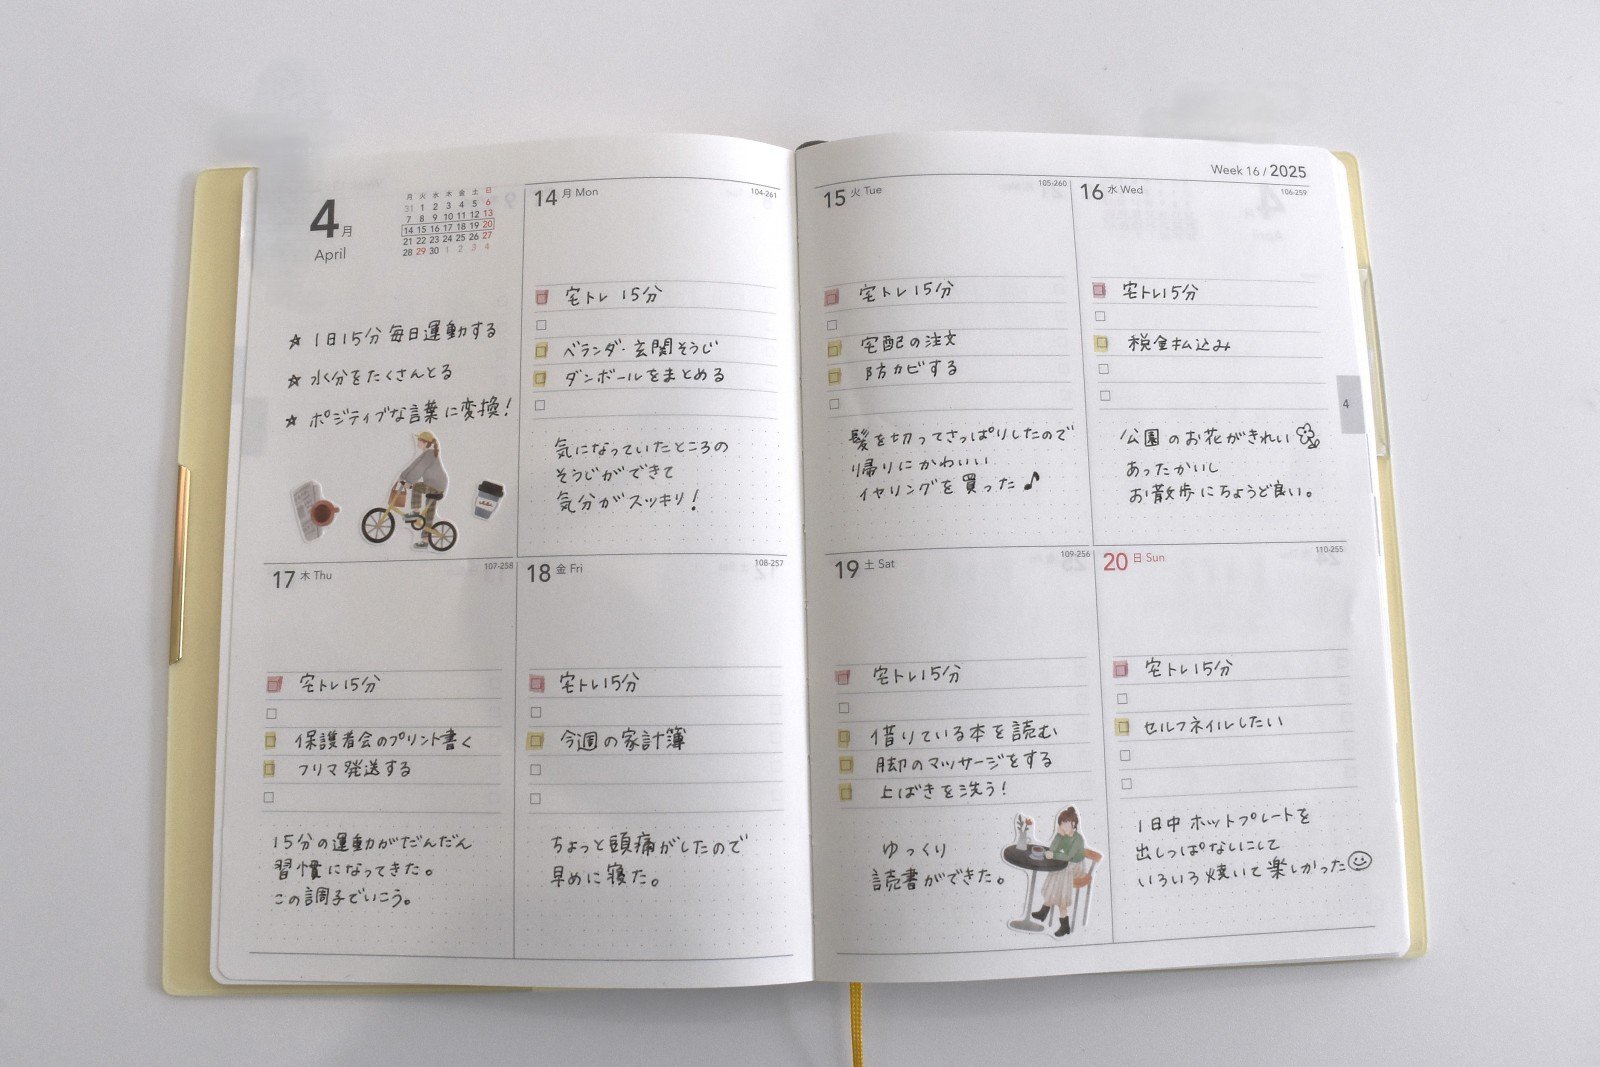 4月
April
月 火 水 木 金 土 日
31 1 2 3 4 5 6
7 8 9 10 11 12 13
14 15 16 17 18 19 20
21 22 23 24 25 26 27
28 29 30 1 2 3 4
☆ 1日15分 毎日運動する
☆ 水分をたくさんとる
☆ ポジティブな言葉に変換!
14 月 Mon
104-261
宅トレ 15分
ベランダ・玄関そうじ
ダンボールをまとめる
気になっていたところの
そうじができて
気分がスッキリ!
17 木 Thu
107-258
宅トレ15分
保護者会のプリント書く
フリマ発送する
15分の運動がだんだん
習慣になってきた。
この調子でいこう。
18 金 Fri
108-257
宅トレ15分
今週の家計簿
ちょっと頭痛がしたので
早めに寝た。
Week 16 / 2025
15 火 Tue
105-260
宅トレ15分
宅配の注文
防カビする
髪を切ってさっぱりしたので
帰りにかわいい
イヤリングを買った♪
16 水 Wed
106-259
宅トレ15分
税金払込み
公園のお花がきれい
あったかいし
お散歩にちょうど良い。
4
19 土 Sat
109-256
宅トレ15分
借りている本を読む
脚のマッサージをする
上ばきを洗う!
ゆっくり
読書ができた。
20 日 Sun
110-255
宅トレ15分
セルフネイルしたい
1日中ホットプレートを
出しっぱなしにして
いろいろ焼いて楽しかった